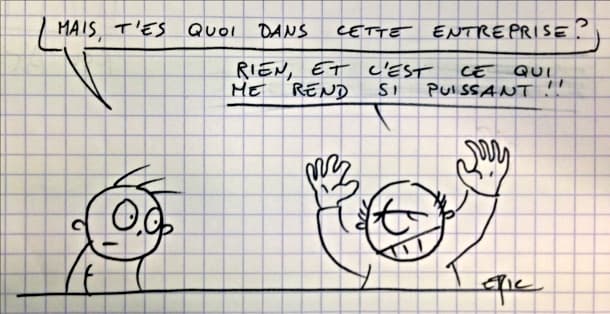 MAIS, T'ES QUOI DANS CETTE ENTREPRISE?
RIEN, ET C'EST CE QUI
ME REND SI PUISSANT!!
EPIC